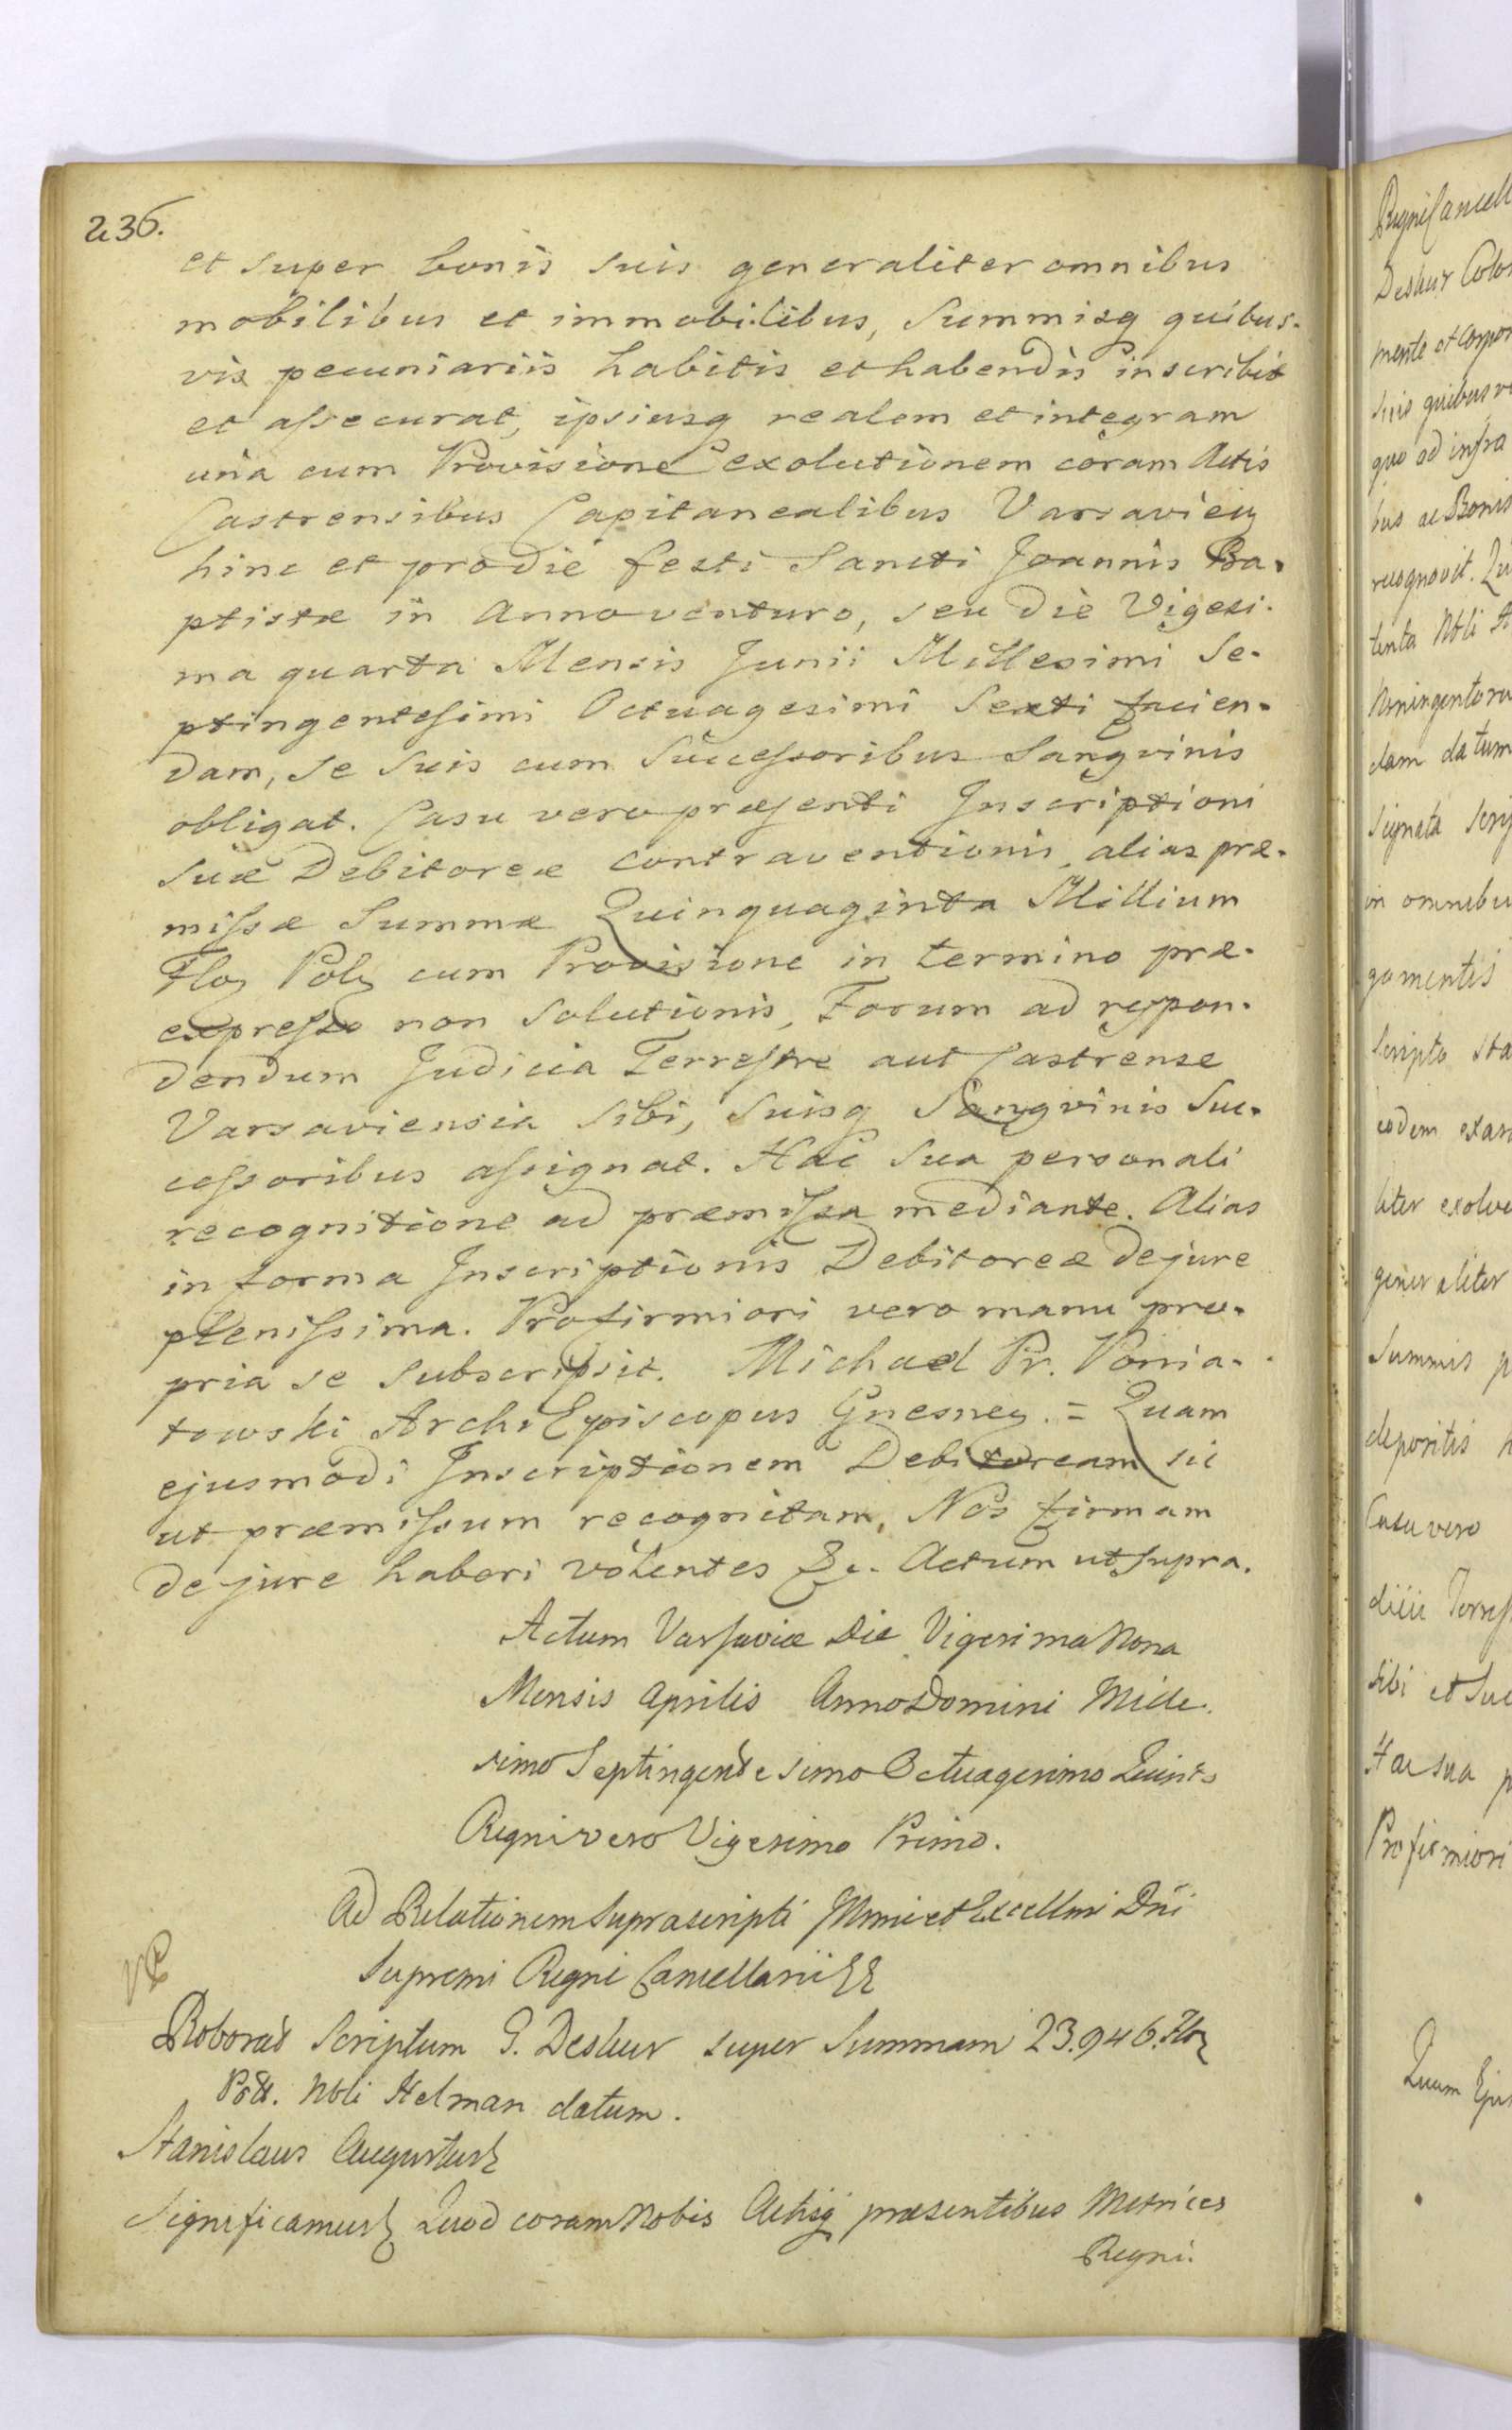 236.
et super bonis suis generaliter omnibus
mobilibus et immobilibus, Summisq quibus-
vis pecuniariis habitis et habendis inscribit
et assecurat, ipsiusq realem et integram
una cum Provisione exolutionem coram Actis
Castrensibus Capitanealibus Varsavien
hinc et pro die festi Sancti Joannis Ba-
ptistæ in Anno venturo, seu die Vigesi-
ma quarta Mensis Junii Millesimi Se-
ptingentesimi Octuagesimi Sexti facien-
dam, se suis cum Successoribus Sangvinis
obligat. Casu vero præsenti Inscriptioni
suæ Debitoreæ contraventionis, alias præ-
missæ Summæ Quinquaginta Millium
Flor Pol cum Provisione in termino præ-
expresso non solutionis, Forum ad respon-
dendum Judicia Terrestre aut Castrense
Varsaviensia sibi, suisq Sangvinis Suc-
cessoribus assignat. Hac sua personali
recognitione ad præmissa mediante. Alias
in forma Inscriptionis Debitoreæ de jure
plenissima. Pro firmiori vero manu pro-
pria se subscripsit. Michael Pr. Ponia-
towski Archi Episcopus Gnesnen. = Quam
ejusmodi Inscriptionem Debitoream sic
ut præmissum recognitam, Nos firmam
de jure haberi volentes &c. Actum ut supra.
Actum Varsaviæ Die Vigesima Nona
Mensis Aprilis Anno Domini Mille-
simo Septingentesimo Octuagesimo Quinto
Regni vero Vigesimo Primo.
Ad Relationem Suprascripti Illmi et Excellmi Dñi
Supremi Regni Cancellarii
Roborat Scriptum G. Deshur super Summam 23.946. Flor
Poll. Nbli Helman datum.
Stanislaus Augustus
Significamus Quod coram Nobis Actisq præsentibus Metrices
Regni.
Regni Cancell
Deshur Colo
mente et corpor
suis quibusv
quo ad infra
bus ac Bonis
recognovit. Qui
tenta Nbli H
Noningentoru
dam datum
signata Scrip
in omnibu
gamentis
Scripto sta
eodem exar
liter exolve
generaliter
Summis p
depositis h
Casu vero
dicii Terres
sibi et Suc
Hac sua p
Pro firmiori
Quam Ejus